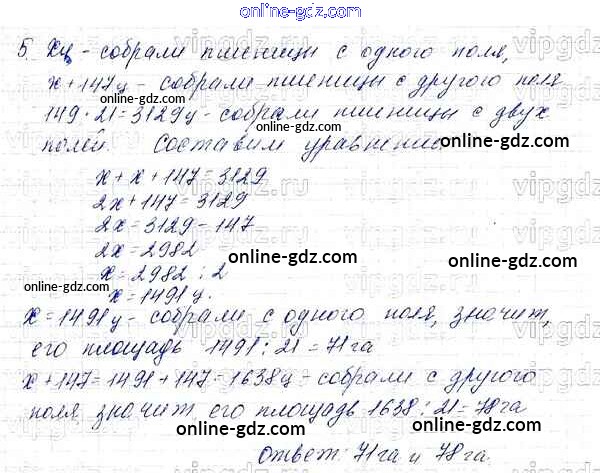 online-gdz.com
5. Xц - собрали пшеницы с одного поля,
x + 147ц - собрали пшеницы с другого поля
online-gdz.com
149 · 21 = 3129ц - собрали пшеницы с двух
полей. Составим уравнение
online-gdz.com
x + x + 147 = 3129
2x + 147 = 3129
2x = 3129 - 147
2x = 2982
online-gdz.com online-gdz.com
x = 2982 : 2
x = 1491 ц.
x = 1491ц - собрали с одного поля, значит,
его площадь 1491 : 21 = 71га
online-gdz.com
x + 147 = 1491 + 147 = 1638ц - собрали с другого
поля, значит, его площадь 1638 : 21 = 78га
online-gdz.com
Ответ: 71га и 78га.
online-gdz.com